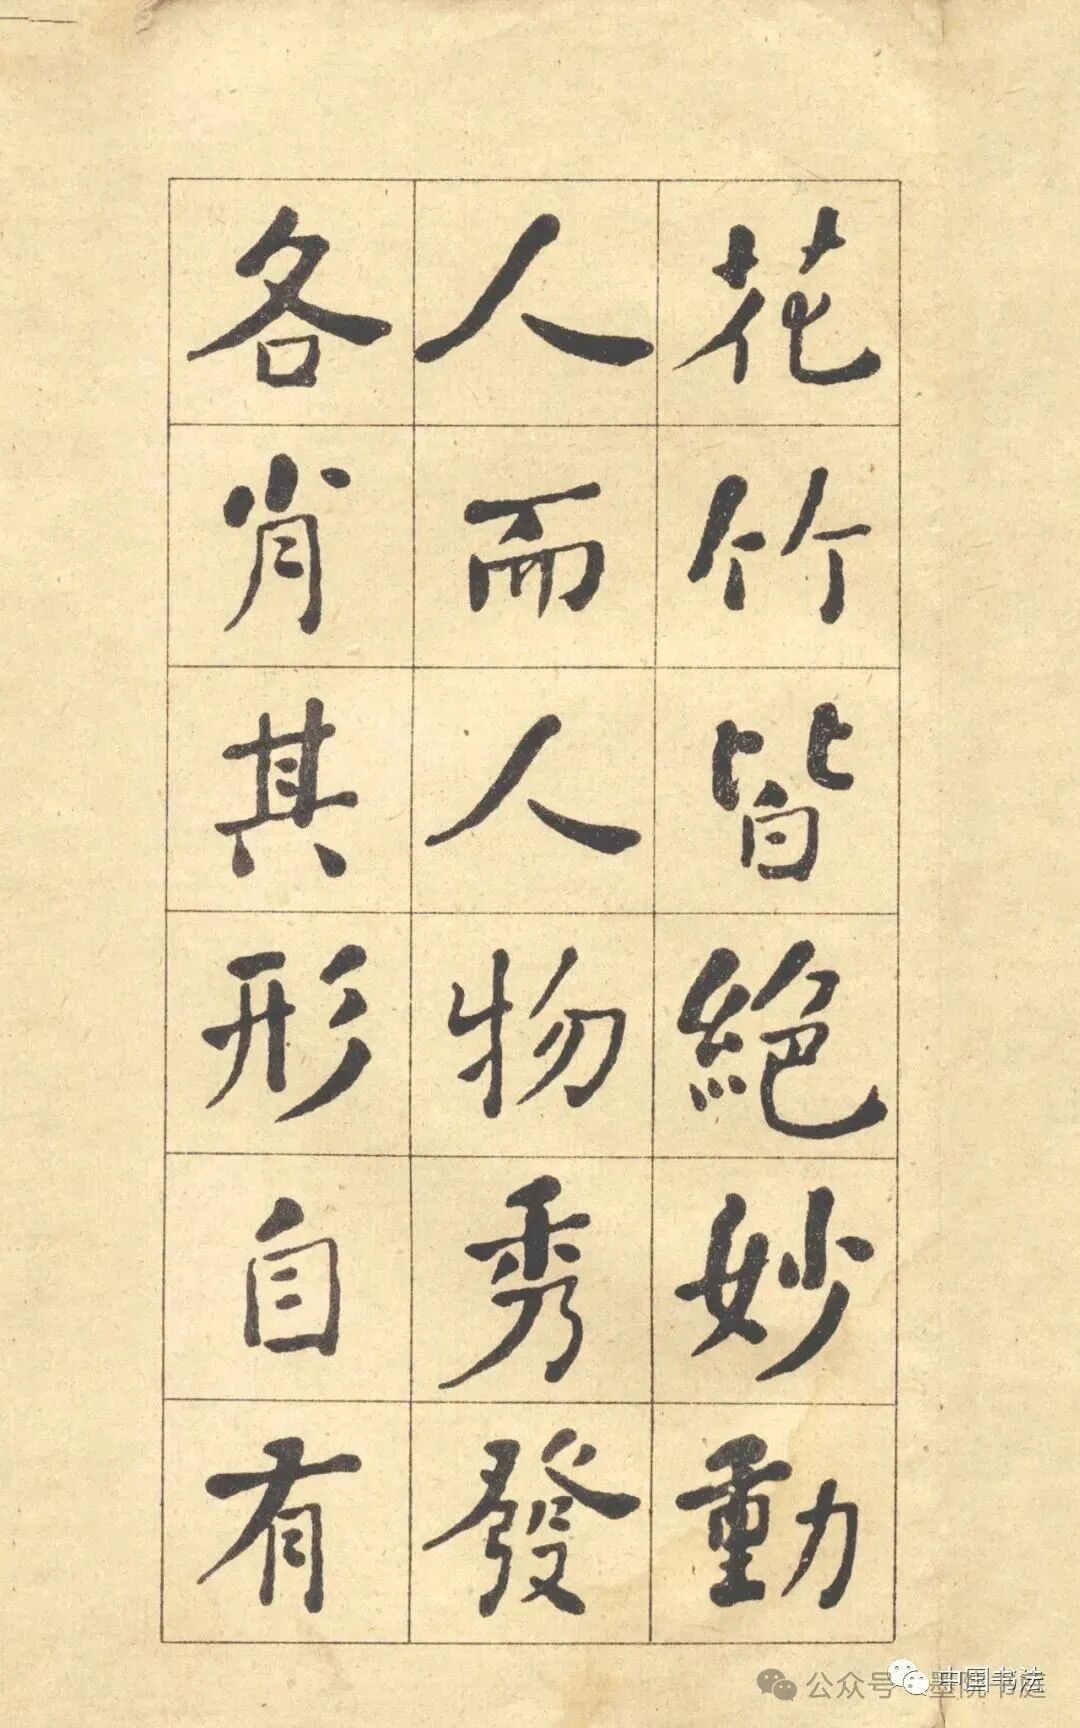 花竹皆絕妙動
人而人物秀發
各肖其形自有
公众号
中国书法